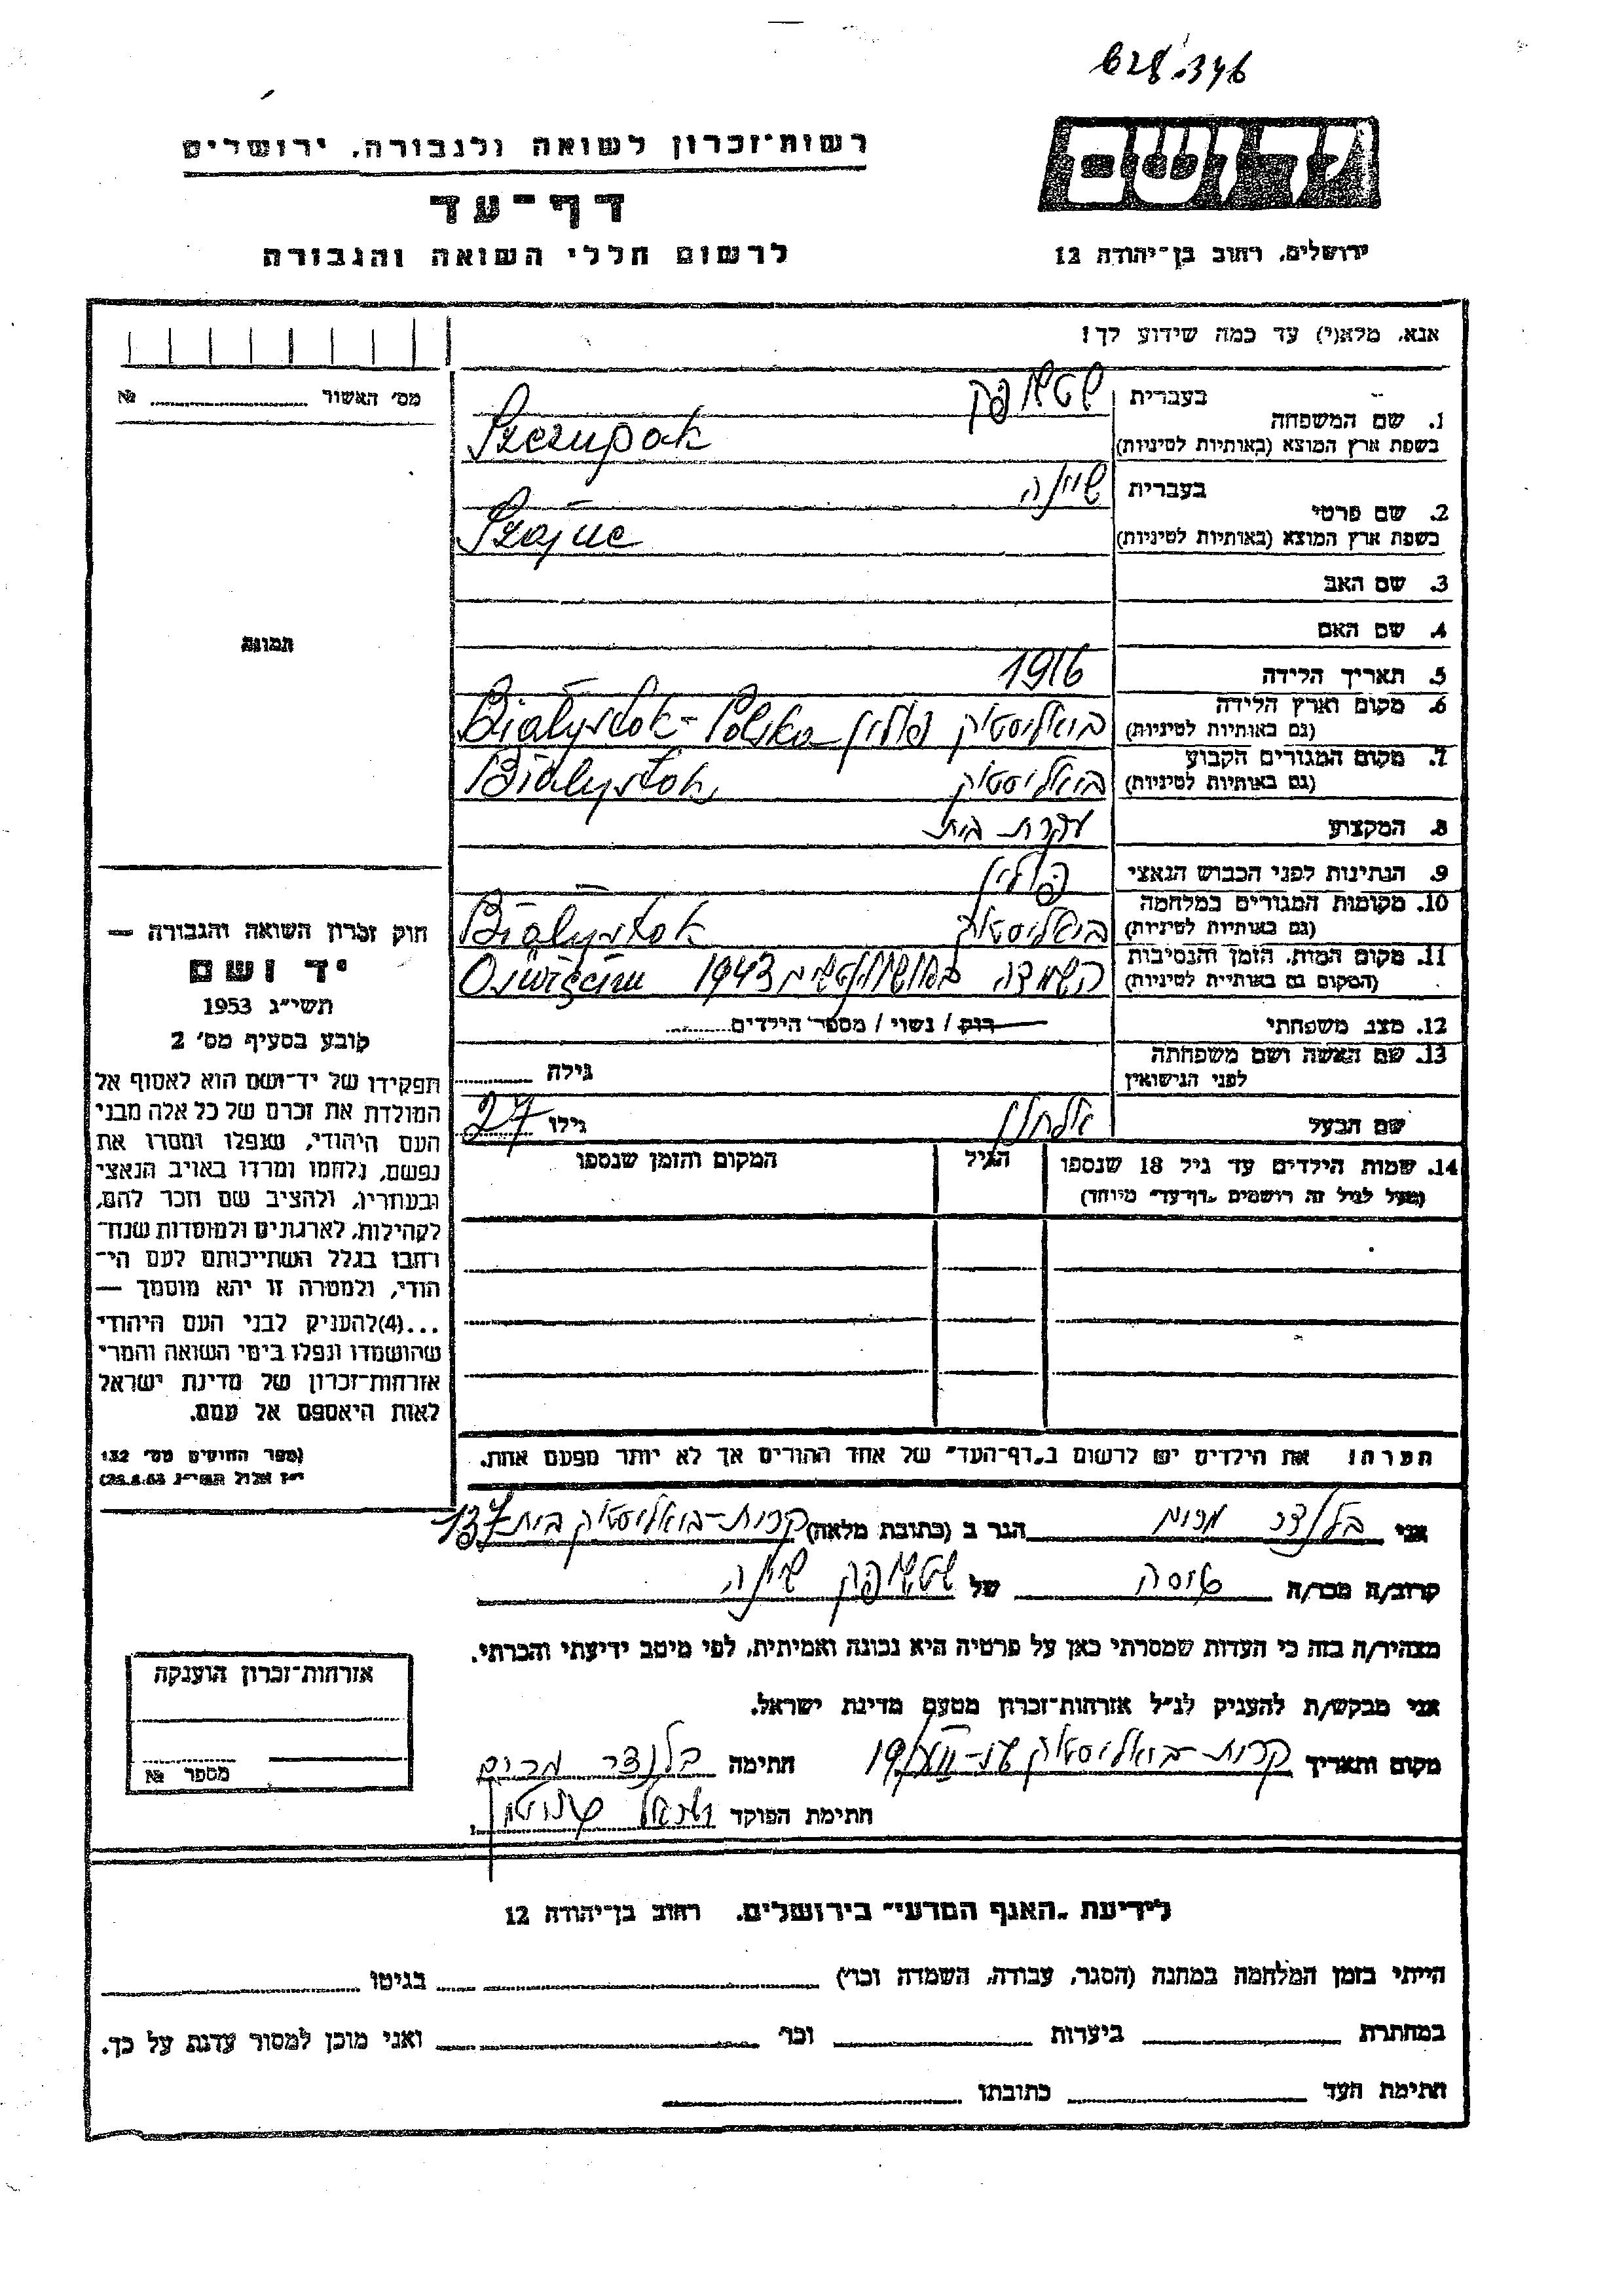 רשות־זכרון לשואה ולגבורה, ירושלים
דף־עד
לרשום חללי השואה והגבורה
ירושלים, רחוב בן־יהודה 12
אנא, מלא(י) עד כמה שידוע לך!
מס' האשור №
1. שם המשפחה
בעברית
בשפת ארץ המוצא (באותיות לטיניות) Szczupak
2. שם פרטי
בעברית שיינה
בשפת ארץ המוצא (באותיות לטיניות) Szajne
3. שם האב
4. שם האם
5. תאריך הלידה 1916
6. מקום וארץ הלידה
(גם באותיות לטיניות) ביאליסטוק פולין Białystok - Polska
7. מקום המגורים הקבוע
(גם באותיות לטיניות) ביאליסטוק Białystok
8. המקצוע עקרת בית
9. הנתינות לפני הכבוש הנאצי פולין
10. מקומות המגורים במלחמה
(גם באותיות לטיניות) ביאליסטוק Białystok
11. מקום המות, הזמן והנסיבות
(המקום גם באותיות לטיניות) השמדה 1943 Oświęcim
12. מצב משפחתי רוק / נשוי / מספר הילדים
13. שם האשה ושם משפחתה
לפני הנישואין גילה
שם הבעל גילו 27
14. שמות הילדים עד גיל 18 שנספו הגיל המקום והזמן שנספו
(מעל לגיל זה רושמים „דף־עד״ מיוחד)
תמונה
חוק זכרון השואה והגבורה —
יד ושם
תשי״ג 1953
קובע בסעיף מס' 2
תפקידו של יד־ושם הוא לאסוף אל
המולדת את זכרם של כל אלה מבני
העם היהודי, שנפלו ומסרו את
נפשם, נלחמו ומרדו באויב הנאצי
ובעוזריו, ולהציב שם וזכר להם,
לקהילות, לארגונים ולמוסדות שנח־
רבו בגלל השתייכותם לעם הי־
הודי, ולמטרה זו יהא מוסמך —
...(4)להעניק לבני העם היהודי
שהושמדו ונפלו בימי השואה והמרי
אזרחות־זכרון של מדינת ישראל
לאות היאספם אל עמם.
(ספר החוקים מס' 132
י״ז אלול תשי״ג 28.8.53)
הערה: את הילדים יש לרשום ב„דף־העד״ של אחד ההורים אך לא יותר מפעם אחת.
אני בלנדר מרים הגר ב (כתובת מלאה) קרית-ביאליסטוק בית 137
קרוב/ה מכר/ה גיסה של שיינה
מצהיר/ה בזה כי העדות שמסרתי כאן על פרטיה היא נכונה ואמיתית, לפי מיטב ידיעתי והכרתי.
אני מבקש/ת להעניק לנ״ל אזרחות־זכרון מטעם מדינת ישראל.
מקום ותאריך קרית-ביאליסטוק חתימה בלנדר מרים
חתימת הפוקד
אזרחות־זכרון הוענקה
מספר №
לידיעת „האגף המדעי״ בירושלים, רחוב בן־יהודה 12
הייתי בזמן המלחמה במחנה (הסגר, עבודה, השמדה וכו') בגיטו
במחתרת ביערות וכו' ואני מוכן למסור עדות על כך.
חתימת העד כתובתו